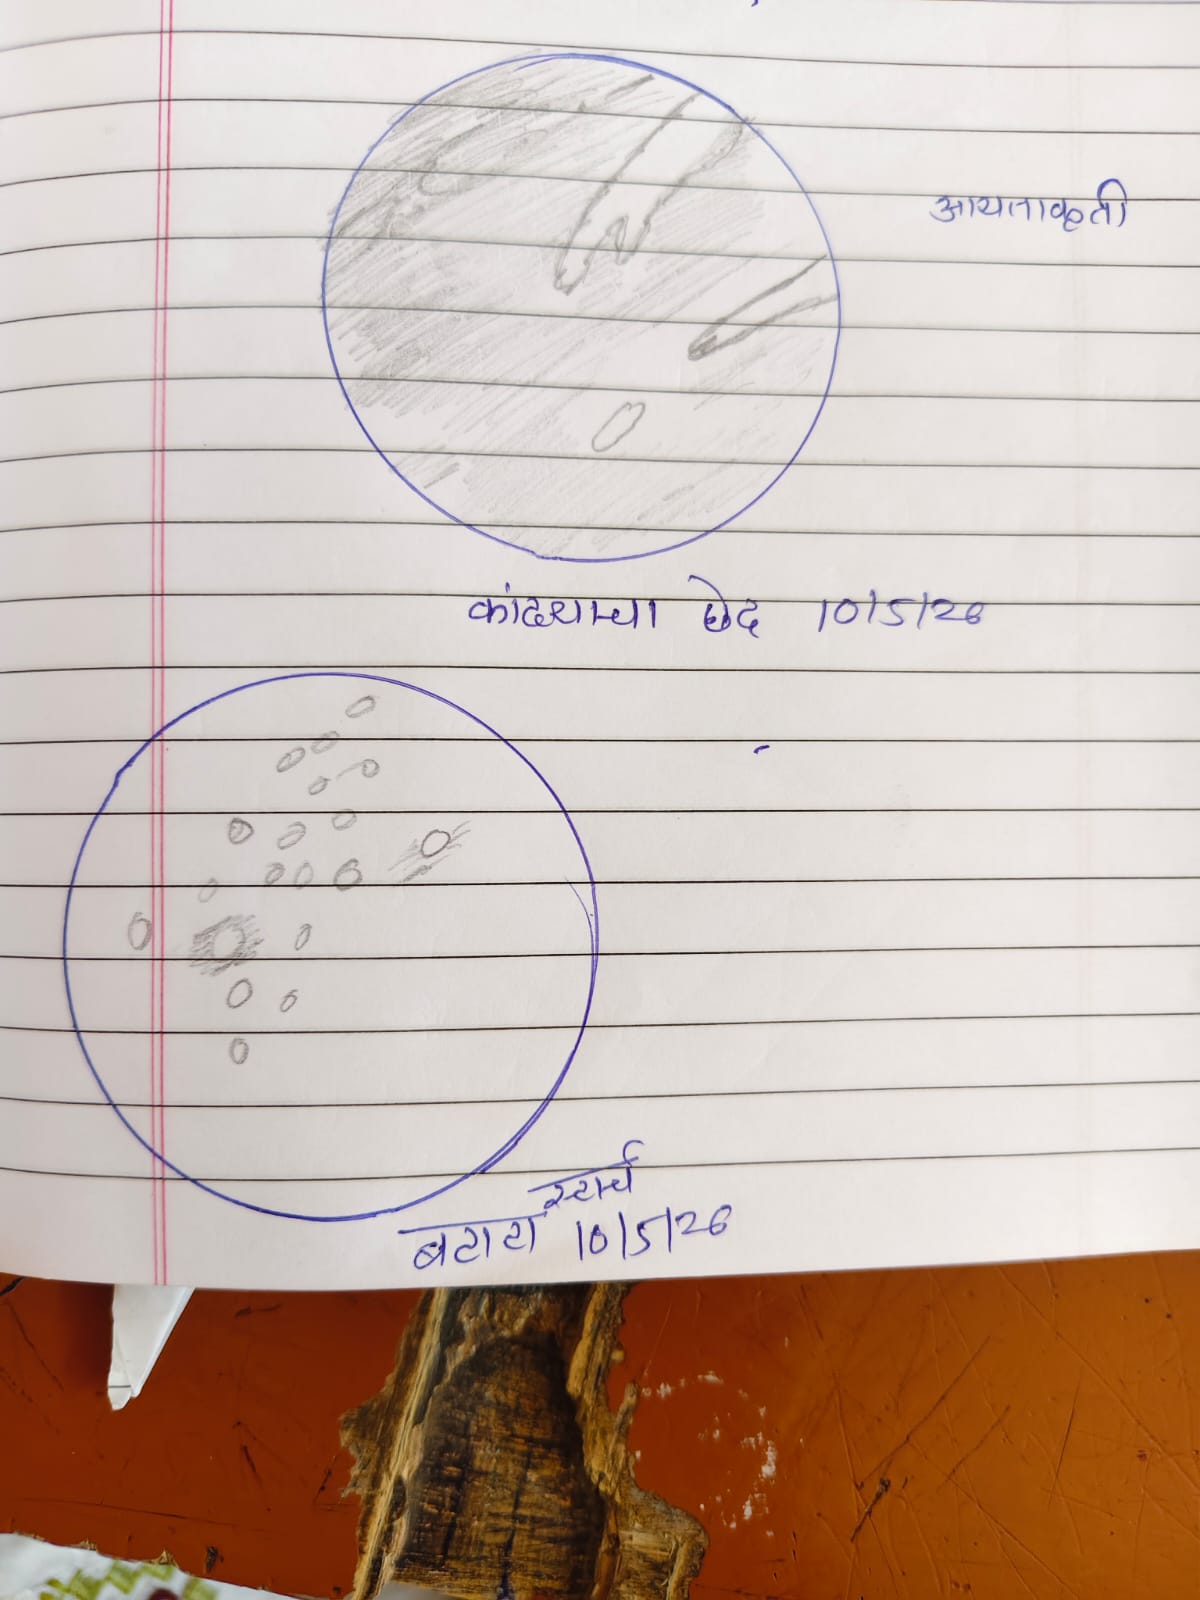 आयताकृती
कांद्याचा छेद 10/5/26
स्टार्च
बटाटा 10/5/26